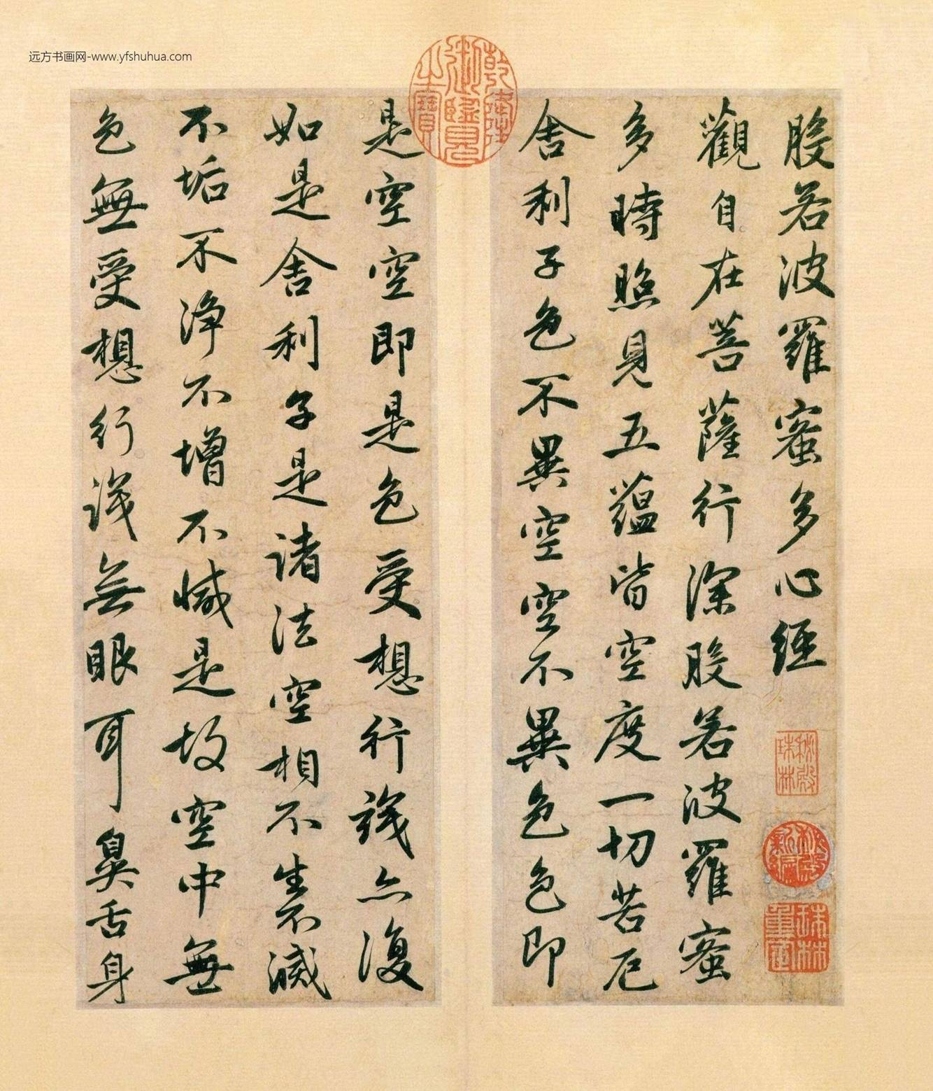 远方书画网-www.yfshuhua.com
乾隆御覽之寶
般若波羅蜜多心經
秘殿珠林
秘殿新編
珠林重定
觀自在菩薩行深般若波羅蜜
多時照見五蘊皆空度一切苦厄
舍利子色不異空空不異色色即
是空空即是色受想行識亦復
如是舍利子是諸法空相不生不滅
不垢不淨不增不減是故空中無
色無受想行識無眼耳鼻舌身